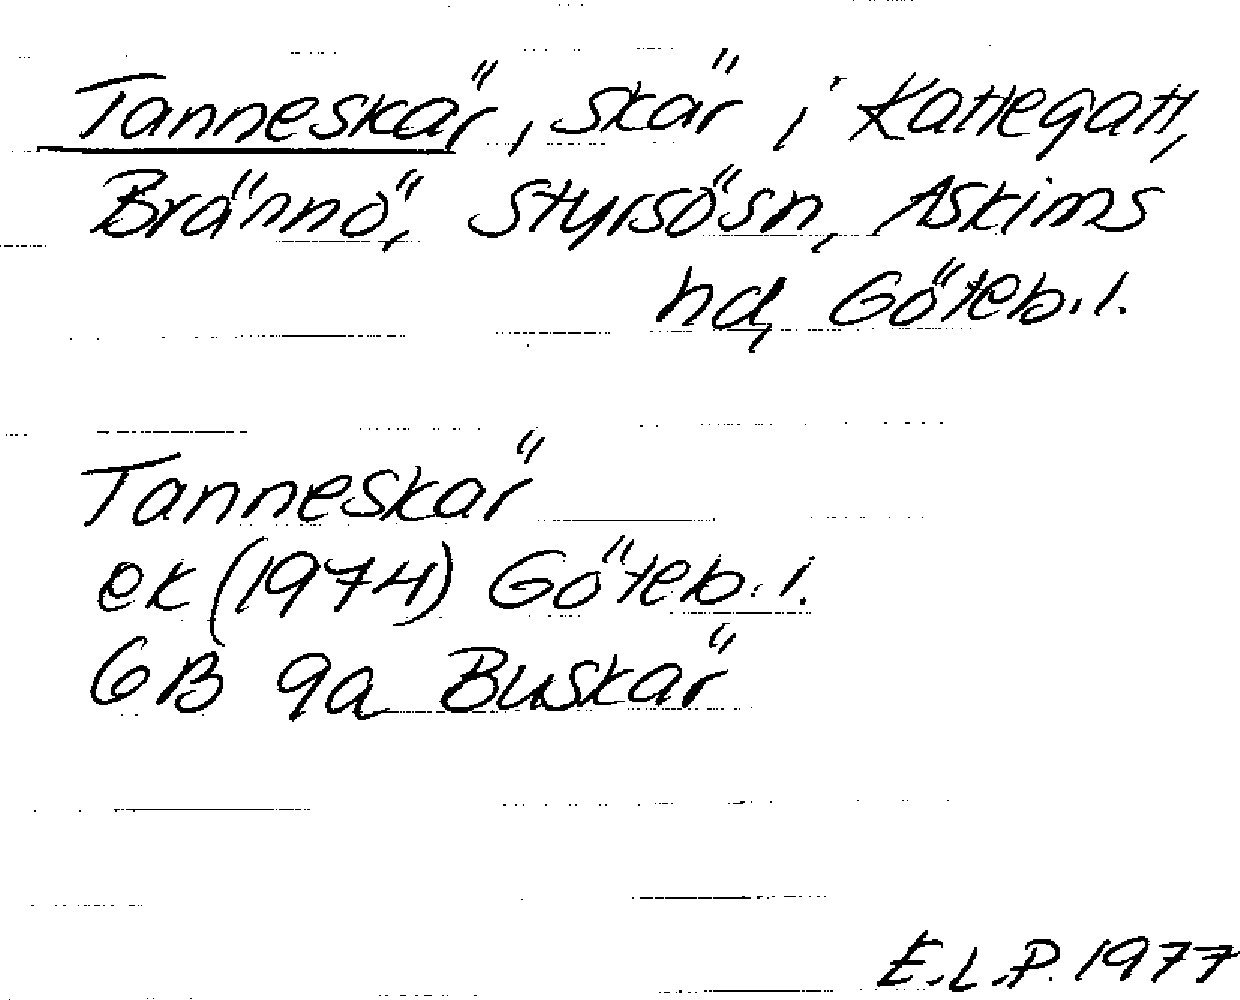 Tanneskär, skär i Kattegatt,
Brännö, Styrsösn, Askims
hd, Göteb. l.
Tanneskär
ek (1974) Göteb. l.
6B 9a Buskär
E.L.P. 1977